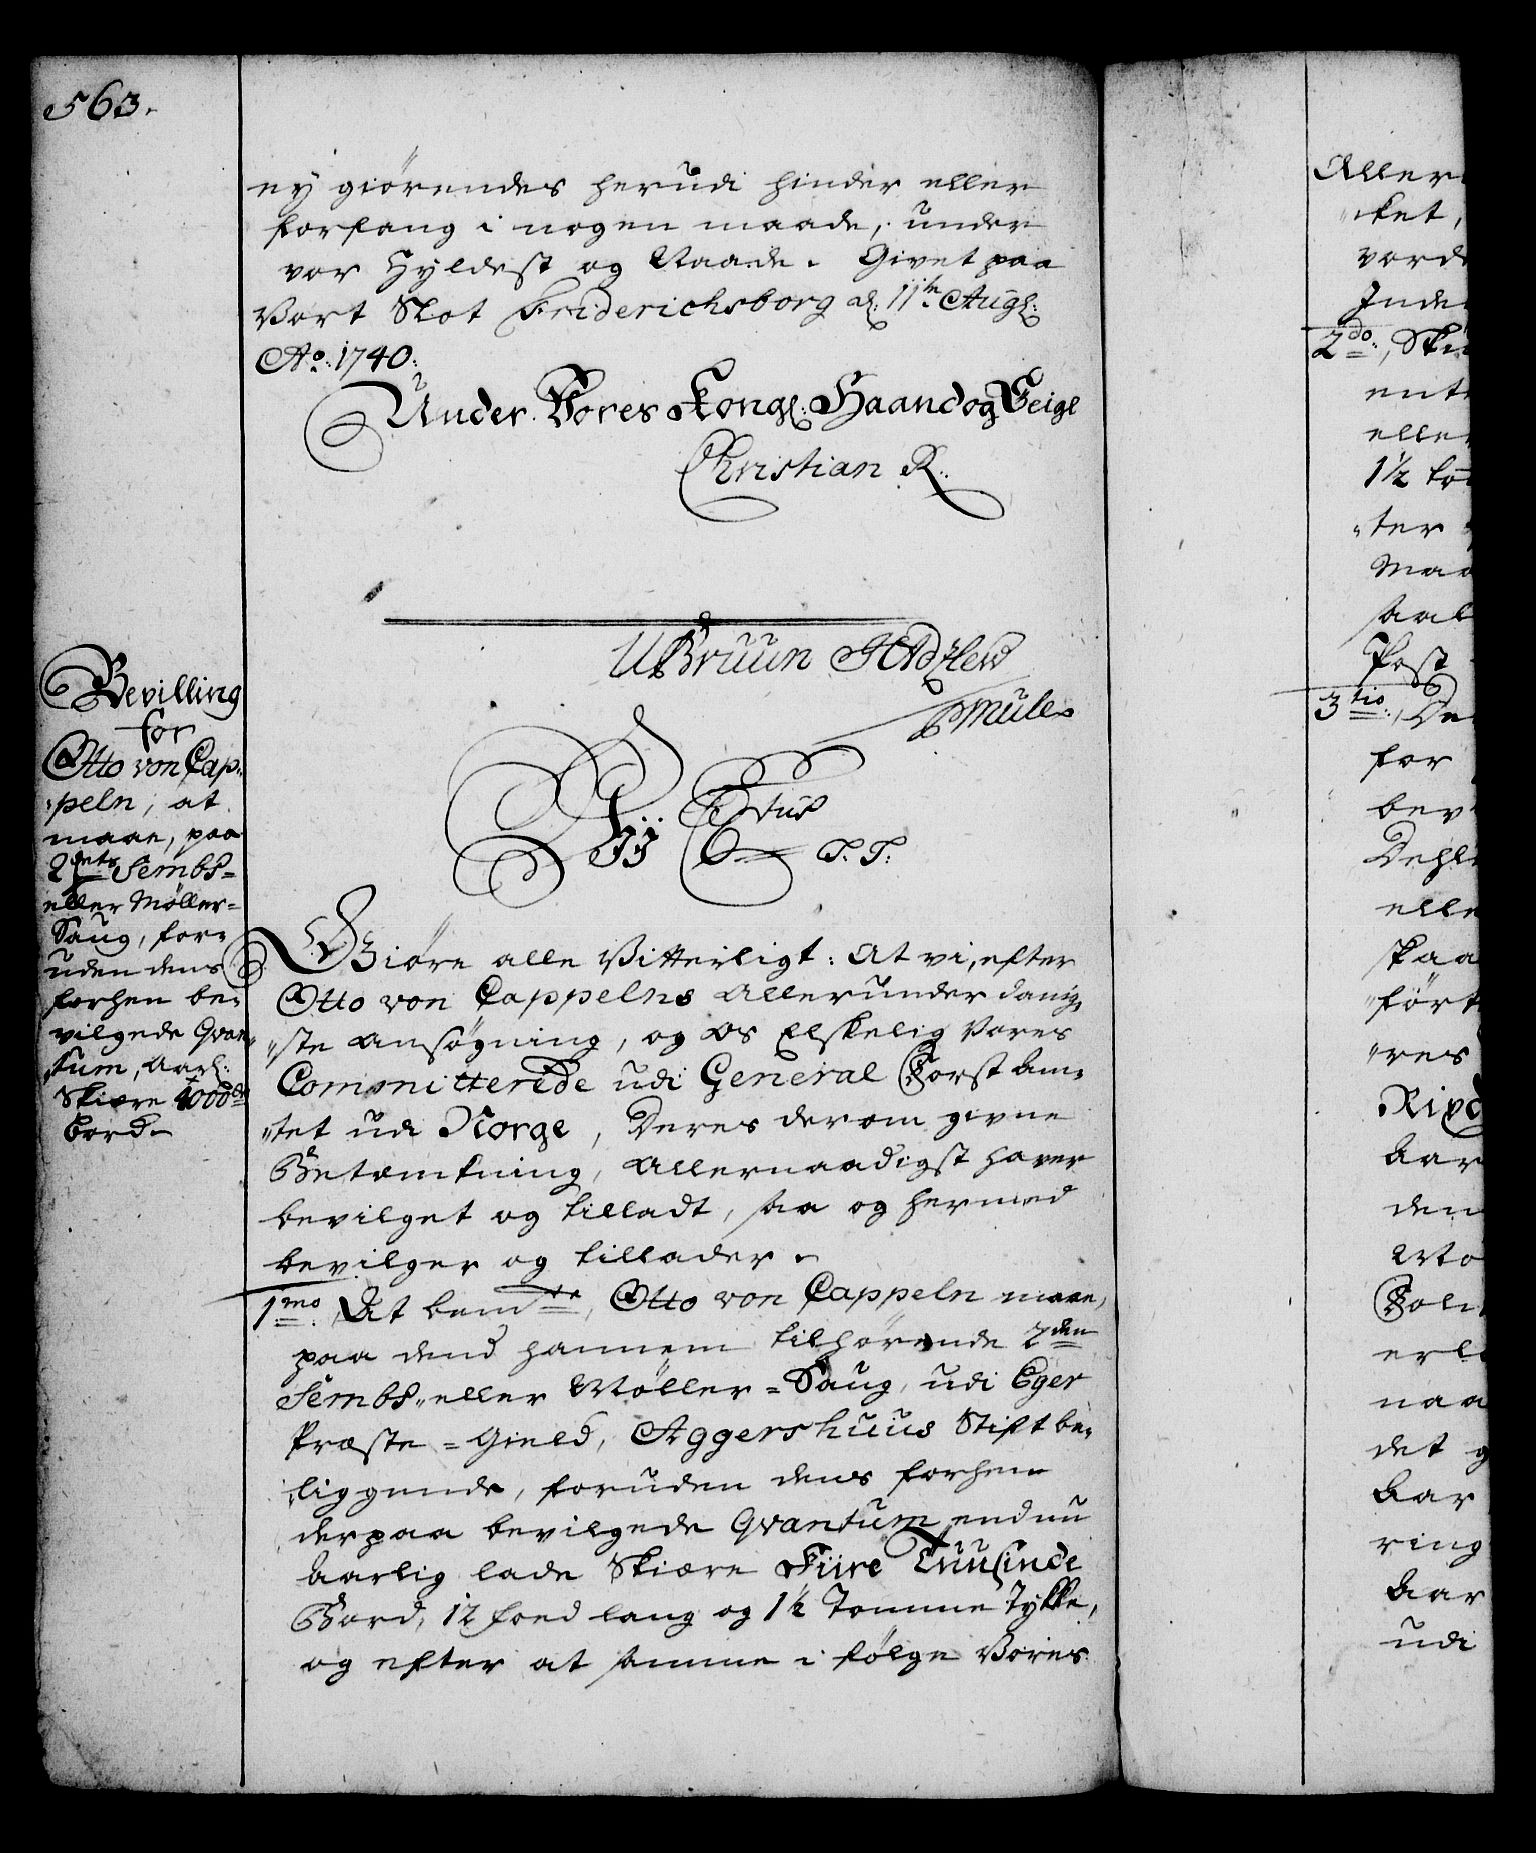 563.
ey giörendes herudi hinder eller
forfang i nogen maade, under
vor Hyldest og Naade. Givet paa
Vort Slot Friderichsborg d: 11te Augs:
Ao: 1740.
Under Vores Kongl: Haand og Seigl
Christian R.
UBruun
Mule
Bevilling
for
Otto von Cap-
peln, at
maae, paa
2dets Sembs-
eller Møller-
Saug, for-
uden dens
forhen be-
vilgede Qvan-
tum, Aarl:
Skiære 4000de
Bord.
Vij C 6tus
T. T:
Giöre alle Vitterligt: At vi, efter
Otto von Cappelns Allerunderdanig-
ste Ansøgning, og Os Elskelig Vores
Committerede udi General Forst Am-
tet udi Norge, Deres derom givne
Betænkning, Allernaadigst haver
bevilget og tilladt, saa og hermed
bevilger og tillader.
1mo. At bemte, Otto von Cappeln maae,
paa dend hannem tilhørende 2den
Sembs- eller Möller-Saug, udi Eger
Præste-Gield, Aggershuus Stift be-
liggende, foruden dens forhen
derpaa bevilgede Qvantum endnu
Aarlig lade Skiære Fiire Tuusinde
Bord, 12 foed lang og 1½ Tomme Tykke,
og efter at samme i følge Vores
Aller
ket,
vord
Inde
2do, Ski
ent
elle
1½ to
ter
Maa
saal
Post
3tio, De
for
bev
Dehl
elle
skaa
fört
res
Rixd
Aar
den
Mo
Fol
erl
naa
det g
Aar
ring
Aar
udi